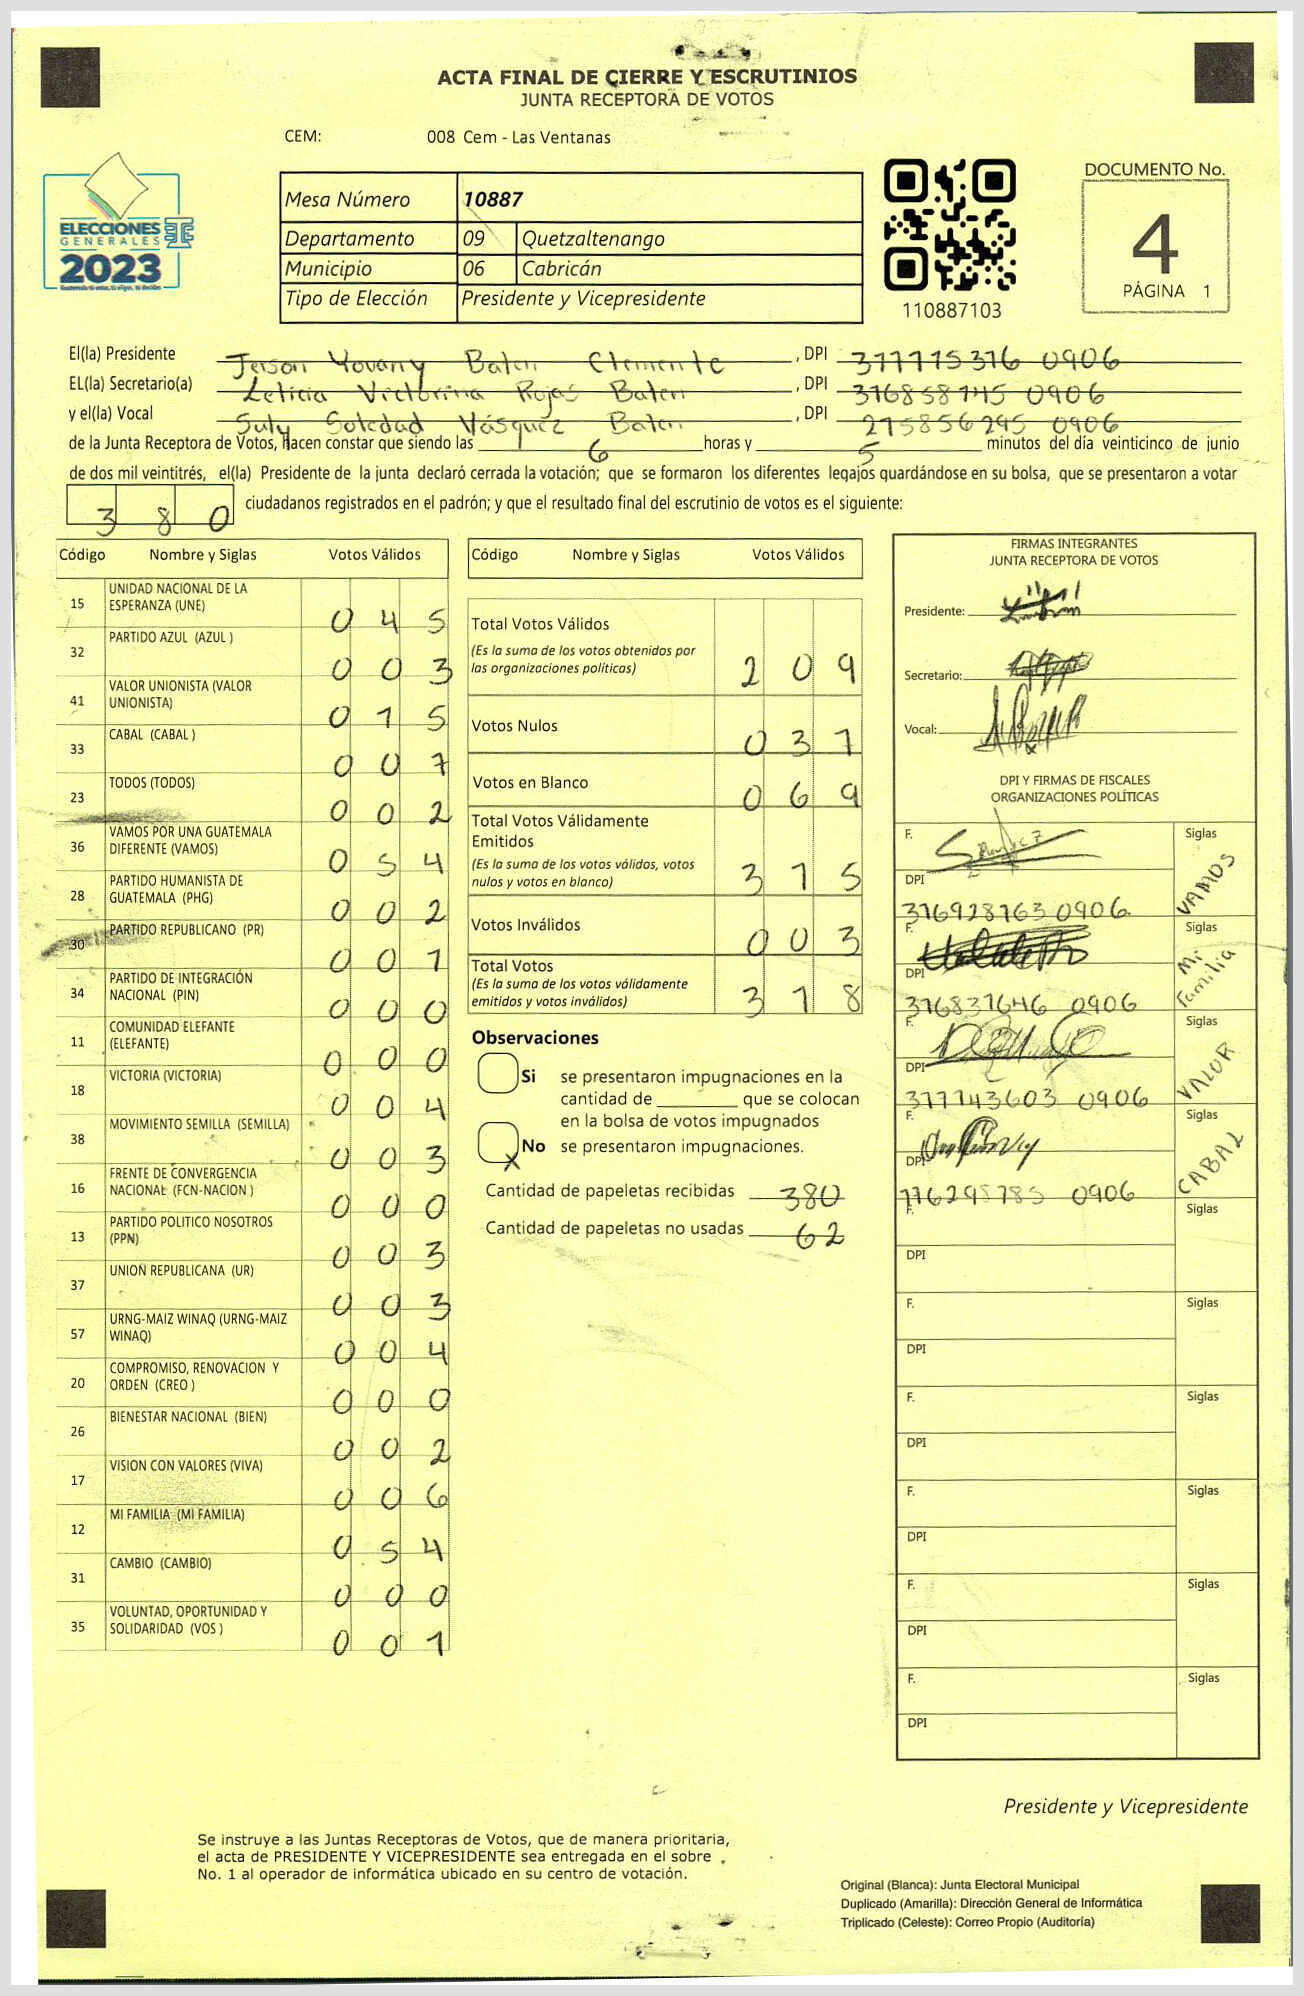 ACTA FINAL DE CIERRE Y ESCRUTINIOS
JUNTA RECEPTORA DE VOTOS
CEM: 008 Cem - Las Ventanas
ELECCIONES
GENERALES
2023
Mesa Número 10887
Departamento 09 Quetzaltenango
Municipio 06 Cabricán
Tipo de Elección Presidente y Vicepresidente
110887103
DOCUMENTO No.
4
PÁGINA 1
El(la) Presidente Jerson Yovany Baten Clemente, DPI 377775376 0906
EL(la) Secretario(a) Leticia Victorina Rojas Baten, DPI 376858745 0906
y el(la) Vocal Suly Soledad Vásquez Baten, DPI 275856295 0906
de la Junta Receptora de Votos, hacen constar que siendo las 6 horas y 5 minutos del día veinticinco de junio
de dos mil veintitrés, el(la) Presidente de la junta declaró cerrada la votación; que se formaron los diferentes legajos quardándose en su bolsa, que se presentaron a votar
380 ciudadanos registrados en el padrón; y que el resultado final del escrutinio de votos es el siguiente:
Código Nombre y Siglas Votos Válidos
15 UNIDAD NACIONAL DE LA ESPERANZA (UNE) 045
32 PARTIDO AZUL (AZUL ) 003
41 VALOR UNIONISTA (VALOR UNIONISTA) 015
33 CABAL (CABAL ) 007
23 TODOS (TODOS) 002
36 VAMOS POR UNA GUATEMALA DIFERENTE (VAMOS) 054
28 PARTIDO HUMANISTA DE GUATEMALA (PHG) 002
30 PARTIDO REPUBLICANO (PR) 001
34 PARTIDO DE INTEGRACIÓN NACIONAL (PIN) 000
11 COMUNIDAD ELEFANTE (ELEFANTE) 000
18 VICTORIA (VICTORIA) 004
38 MOVIMIENTO SEMILLA (SEMILLA) 003
16 FRENTE DE CONVERGENCIA NACIONAL (FCN-NACION ) 000
13 PARTIDO POLITICO NOSOTROS (PPN) 003
37 UNION REPUBLICANA (UR) 003
57 URNG-MAIZ WINAQ (URNG-MAIZ WINAQ) 004
20 COMPROMISO, RENOVACION Y ORDEN (CREO ) 000
26 BIENESTAR NACIONAL (BIEN) 002
17 VISION CON VALORES (VIVA) 006
12 MI FAMILIA (MI FAMILIA) 054
31 CAMBIO (CAMBIO) 000
35 VOLUNTAD, OPORTUNIDAD Y SOLIDARIDAD (VOS ) 001
Código Nombre y Siglas Votos Válidos
Total Votos Válidos 209
(Es la suma de los votos obtenidos por
las organizaciones políticas)
Votos Nulos 037
Votos en Blanco 069
Total Votos Válidamente
Emitidos 315
(Es la suma de los votos válidos, votos
nulos y votos en blanco)
Votos Inválidos 003
Total Votos 318
(Es la suma de los votos válidamente
emitidos y votos inválidos)
Observaciones
Si se presentaron impugnaciones en la
cantidad de ________ que se colocan
en la bolsa de votos impugnados
X No se presentaron impugnaciones.
Cantidad de papeletas recibidas 380
Cantidad de papeletas no usadas 62
FIRMAS INTEGRANTES
JUNTA RECEPTORA DE VOTOS
Presidente:
Secretario:
Vocal:
DPI Y FIRMAS DE FISCALES
ORGANIZACIONES POLÍTICAS
F. Siglas VAMOS
DPI 376928763 0906
F. Siglas Mi Familia
DPI 376837646 0906
F. Siglas VALOR
DPI 377743603 0906
F. Siglas CABAL
DPI 776295785 0906
F. Siglas
DPI
F. Siglas
DPI
F. Siglas
DPI
F. Siglas
DPI
F. Siglas
DPI
F. Siglas
DPI
Presidente y Vicepresidente
Se instruye a las Juntas Receptoras de Votos, que de manera prioritaria,
el acta de PRESIDENTE Y VICEPRESIDENTE sea entregada en el sobre
No. 1 al operador de informática ubicado en su centro de votación.
Original (Blanca): Junta Electoral Municipal
Duplicado (Amarilla): Dirección General de Informática
Triplicado (Celeste): Correo Propio (Auditoría)